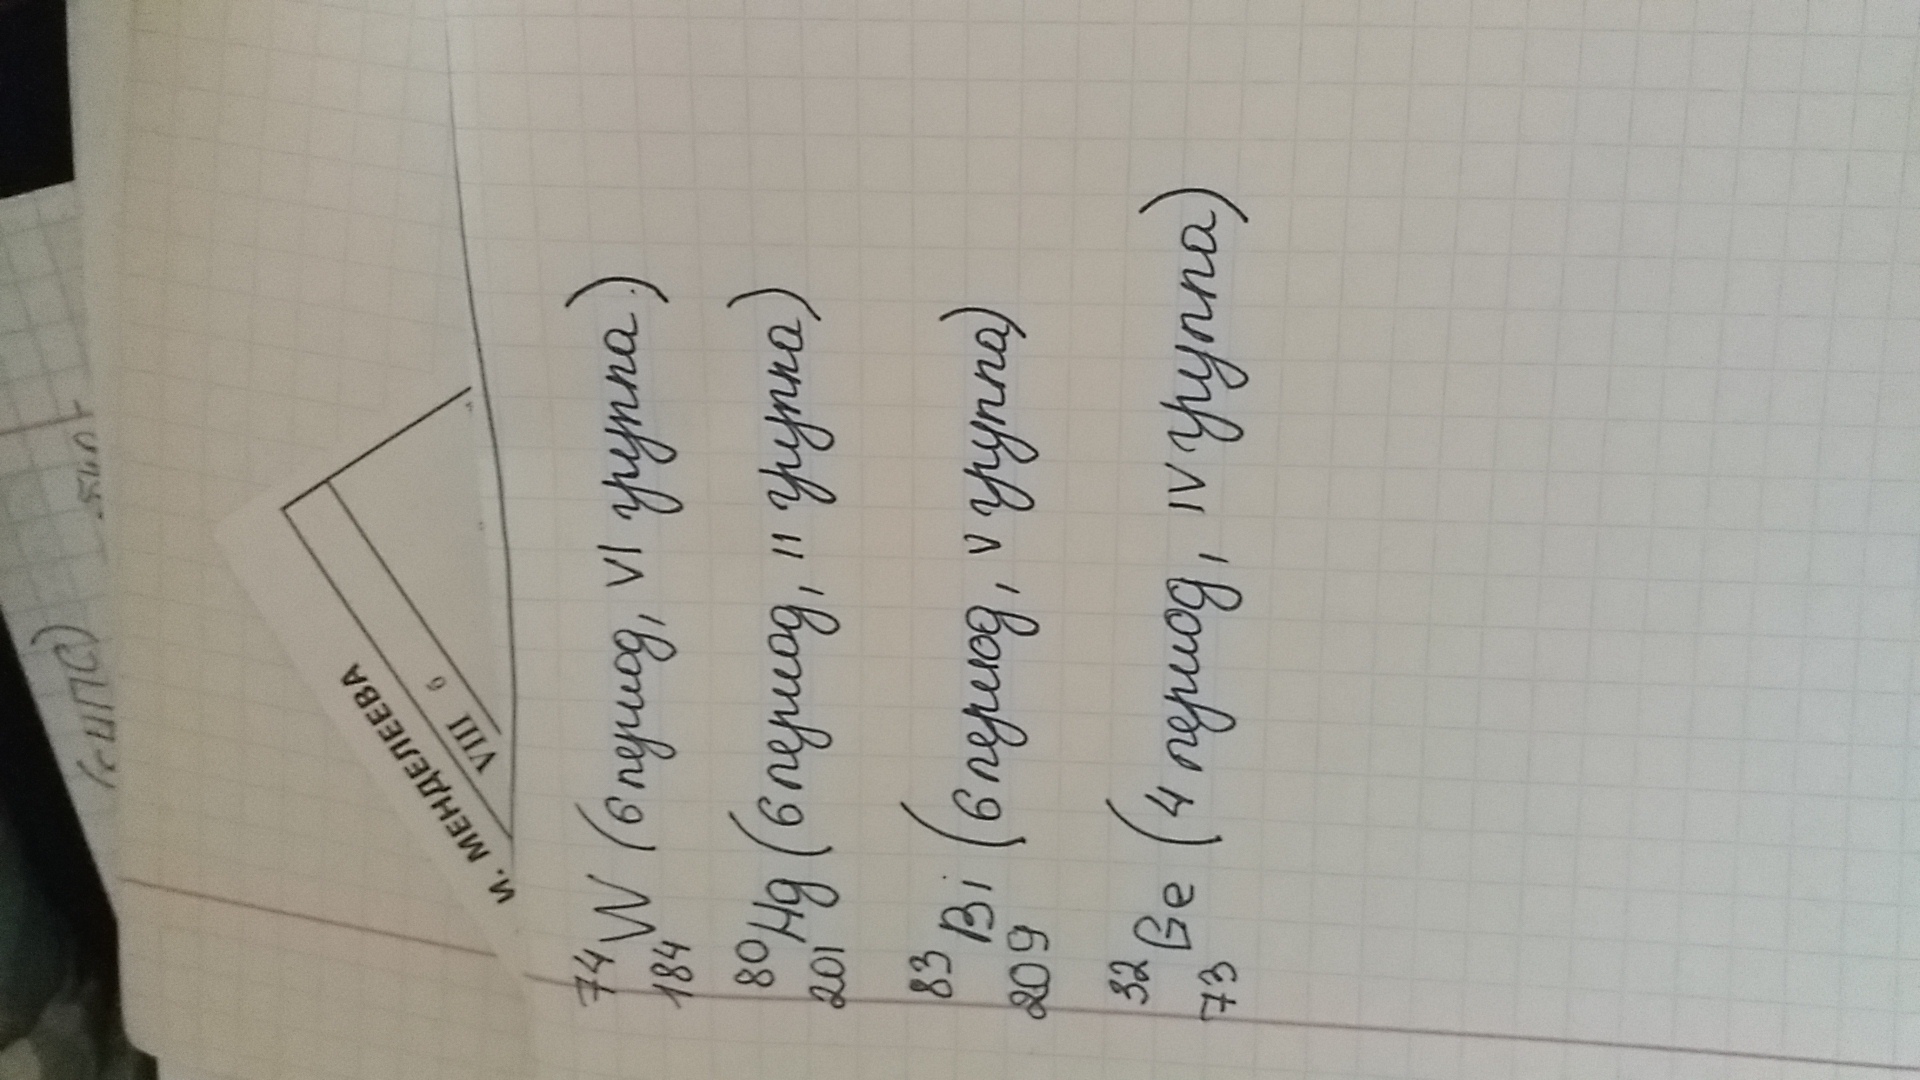 И. МЕНДЕЛЕЕВА
VIII 6
74 W (6 период, VI группа.)
184
80 Hg (6 период, II группа)
201
83 Bi (6 период, V группа)
209
32 Ge (4 период, IV группа)
73